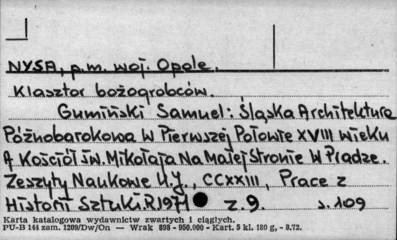 NYSA, p.m. woj. Opole.
Klasztor bożogrobców.
Gumiński Samuel: Śląska Architektura
Późnobarokowa W Pierwszej Połowie XVIII wieku
A Kościół św. Mikołaja Na Małej Stronie W Pradze.
Zeszyty Naukowe U.J., CCXXIII, Prace z
Historii Sztuki R.1971 z. 9. s. 109
Karta katalogowa wydawnictw zwartych i ciągłych.
PU-B 144 zam. 1209/Dw/On — Wrak 898 - 950.000 - Kart. 5 kl. 180 g, - 8.72.